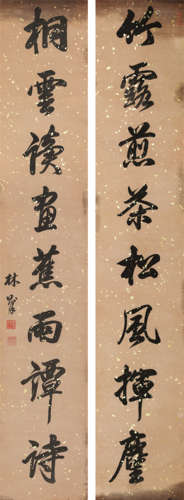 竹露煎茶松風揮麈
桐雲讀畫蕉雨譚詩
林